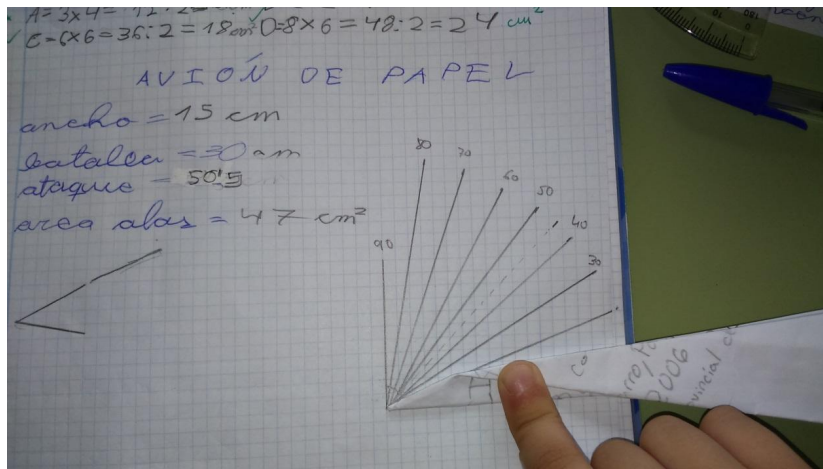 A=3x4=
C=6x6=36:2=18cm D=8x6=48:2=24 cm²
AVIÓN DE PAPEL
ancho = 15 cm
= 30
ataque = 50'5
area alas = 47 cm²
80
70
60
50
40
30
90
2006